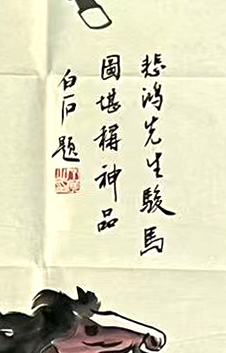 悲鴻先生駿馬
圖堪稱神品
白石題